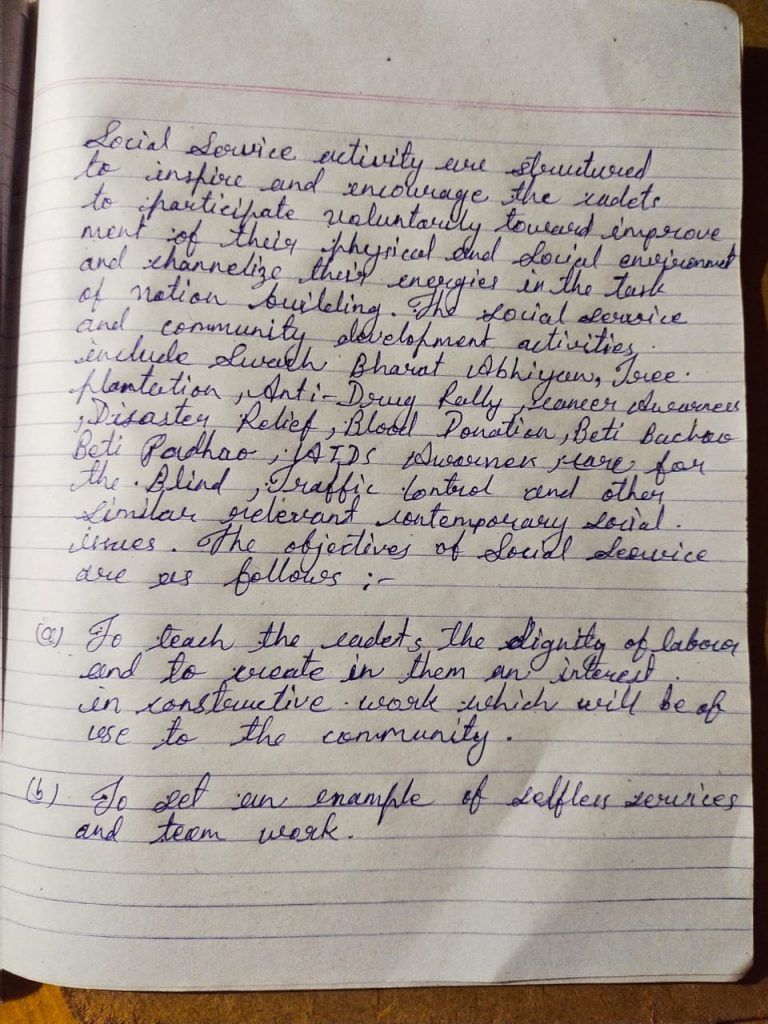 Social Service activity are structured
to inspire and encourage the cadets
to participate voluntarily toward improve
ment of their physical and social environment
and channelize their energies in the task
of nation building. The social service
and community development activities
include Swach Bharat Abhiyan, Tree
plantation, Anti-Drug Rally, cancer Awarness
, Disaster Relief, Blood Donation, Beti Bachao
Beti Padhao, AIDS Awarnes, care for
the Blind, Traffic control and other
similar relevant contemporary social
issues. The objectives of Social Service
are as follows :-
(a) To teach the cadets the dignity of labour
and to create in them an interest
in constructive work which will be of
use to the community.
(b) To set an example of selfless services
and team work.